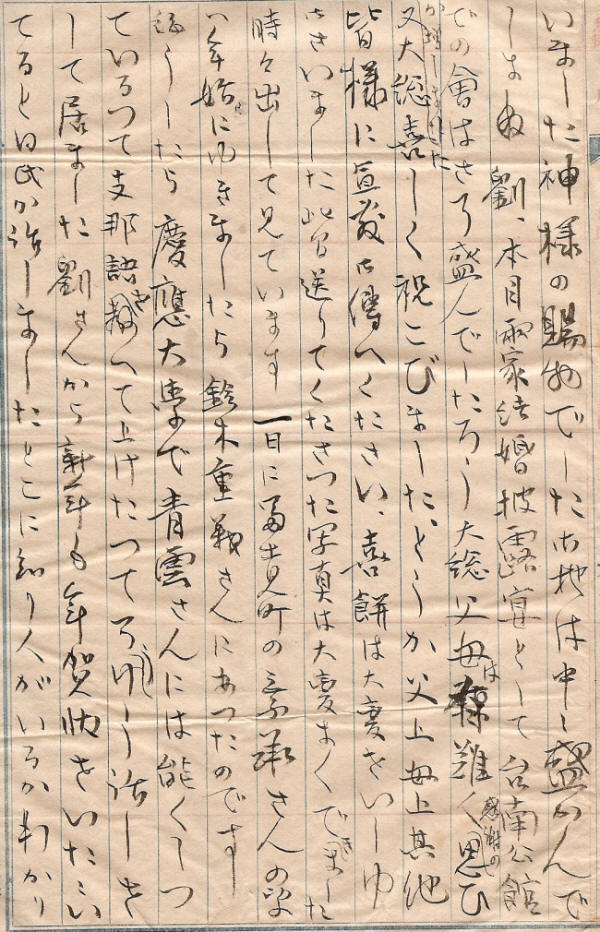 いました神様の賜物でした御地は中々盛かんで
しよね 劉、本目両家結婚披露宴として台南公館
での會はさぞ盛んでしたろう 大総父母は 難く思ひ
感謝の
が增しました
又大総喜しく祝こびました、どうか父上母上其他
皆様に宜敷御傳へください、喜餅は大変おいしゆ
ございました 此間送りてくださつた写真は大変よくできました
時々出して見ています 一日に富士見町の 承さんの家
へ年始にゆきましたら 鈴木重 さんにあつたのです
そうしたら慶應大学で青雲さんには能くしつ
ているつて支那語教へて上げたつて 話しを
して居ました 劉さんから新年も年賀状をいただい
てると同氏が話しました とこに知り人がいるかわかり